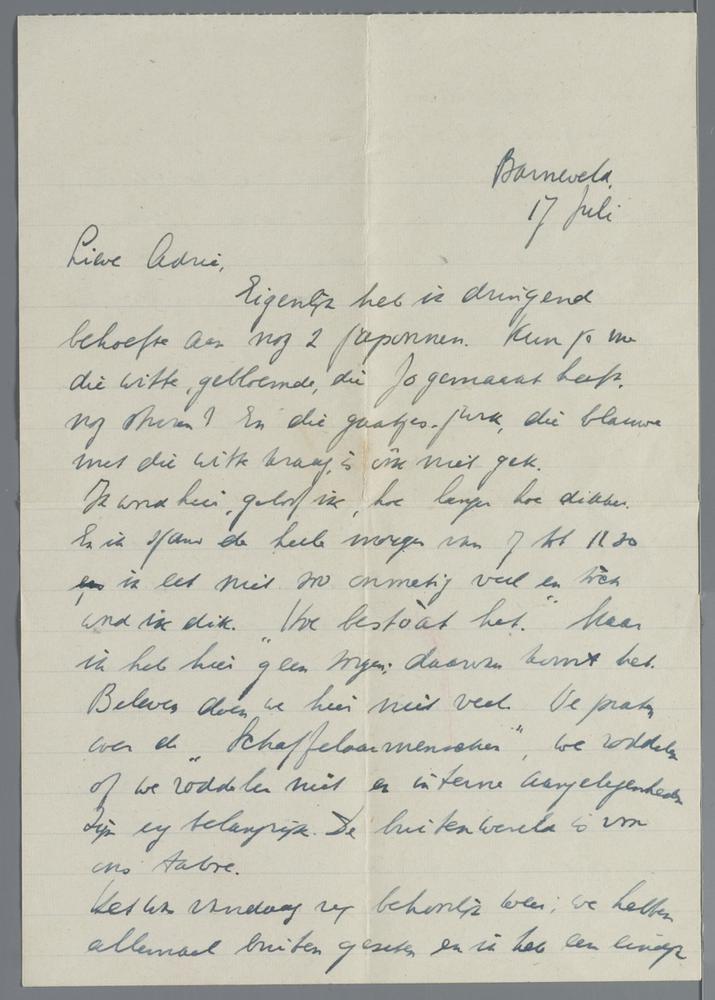 Barneveld,
17 Juli
Lieve Adrie,
Eigenlijk heb ik dringend
behoefte aan nog 2 japonnen. Kun je me
die witte, gebloemde, die Jo gemaakt heeft,
nog sturen? En die gaatjes-jurk, die blauwe
met die witte kraag, is ook niet gek.
Ik word hier, geloof ik, hoe langer hoe dikker.
En ik de heele morgen van 7 tot 11.30
en ik eet niet zoo onmatig veel en tòch
word ik dik. "Hoe bestaat het." Maar
ik heb hier "geen zorgen; daarvan komt het.
Beleven doen we hier niet veel. We praten
over de "Schaffelaarmenschen", we roddelen
of we roddelen niet en interne aangelegenheden
zijn erg belangrijk. De buitenwereld is voor
ons taboe.
Het was vandaag nog behoorlijk weer; we hebben
allemaal buiten gezeten en ik heb een eindje